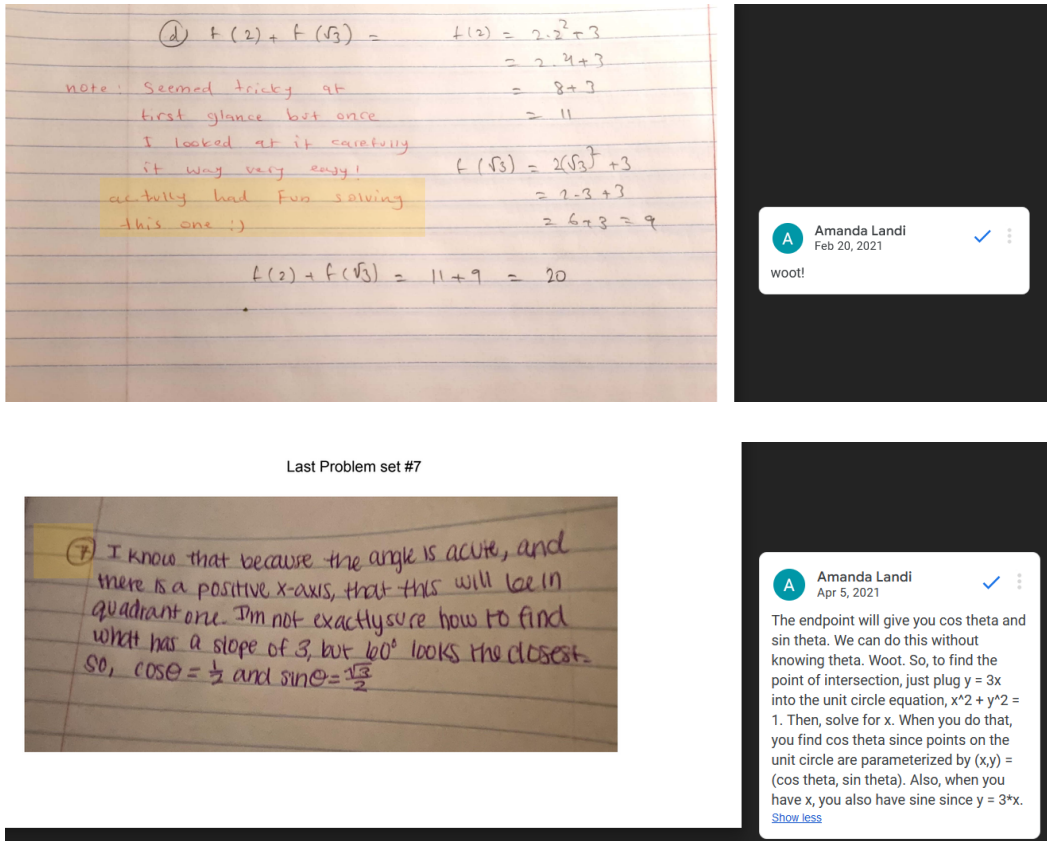 ⓓ f(2) + f(√3) =
f(2) = 2.2² + 3
= 2.4+3
= 8+3
= 11
note: Seemed tricky at
first glance but once
I looked at it carefully
it way very easy!
actully had fun solving
this one :)
f(√3) = 2(√3)² +3
= 2.3 +3
= 6+3 = 9
f(2) + f(√3) = 11+9 = 20
A
Amanda Landi
Feb 20, 2021
woot!
Last Problem set #7
⑦ I know that because the angle is acute, and
there is a positive x-axis, that this will be in
quadrant one. I'm not exactly sure how to find
what has a slope of 3, but 60° looks the closest.
So, cosθ = ½ and sinθ = √3/2
A
Amanda Landi
Apr 5, 2021
The endpoint will give you cos theta and
sin theta. We can do this without
knowing theta. Woot. So, to find the
point of intersection, just plug y = 3x
into the unit circle equation, x^2 + y^2 =
1. Then, solve for x. When you do that,
you find cos theta since points on the
unit circle are parameterized by (x,y) =
(cos theta, sin theta). Also, when you
have x, you also have sine since y = 3*x.
Show less